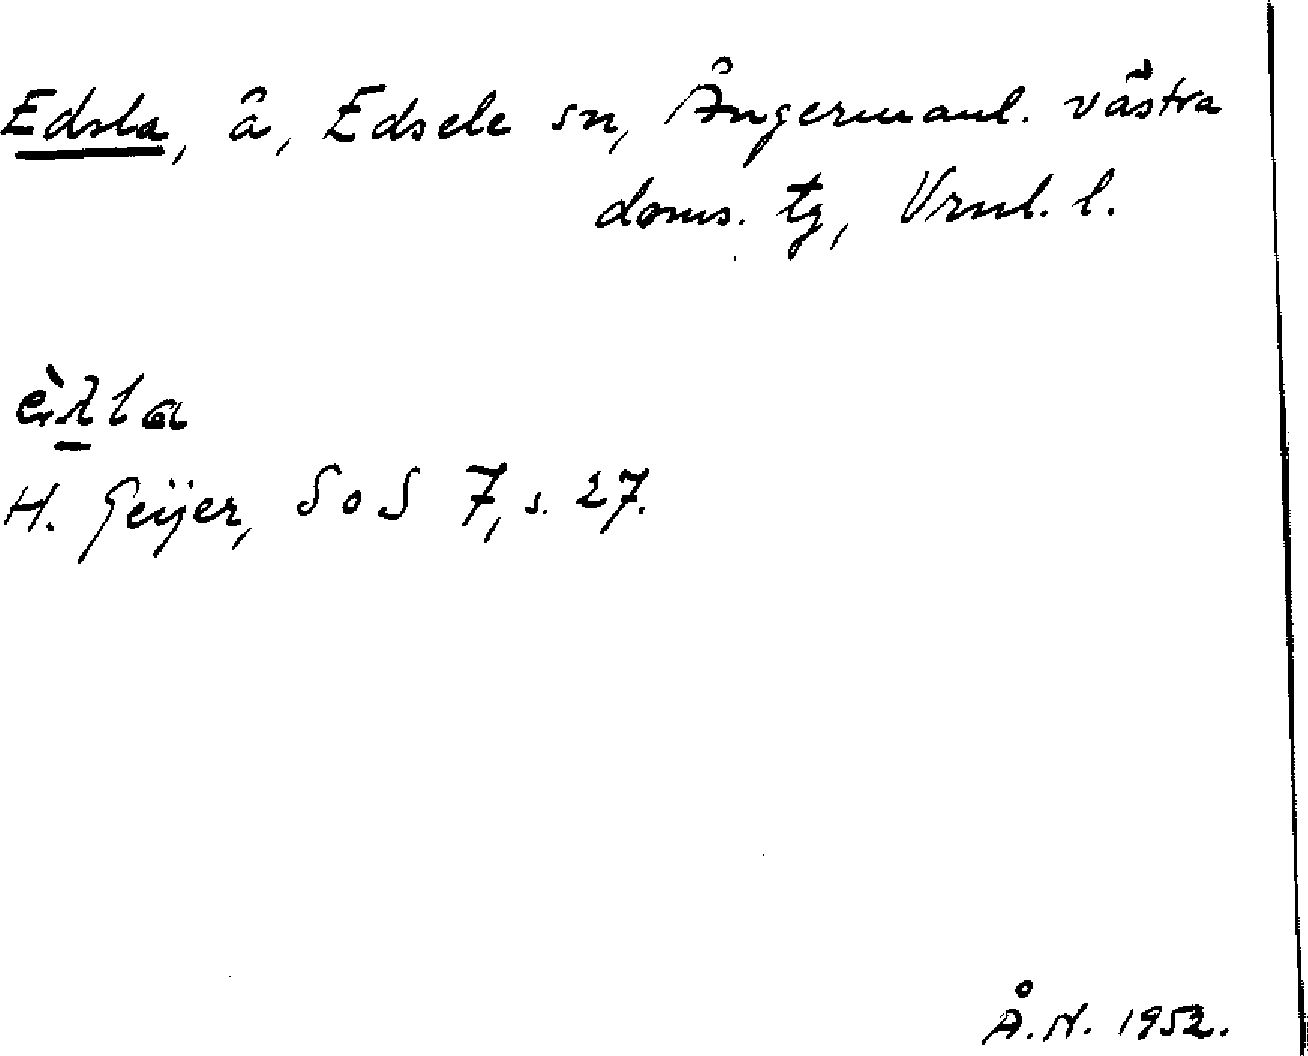 Edsla, å, Edsele sn, Ångermanl. västra
doms. tg, Vrnl. l.
H. Geijer, SoS 7, s. 27.
Å.N. 1952.